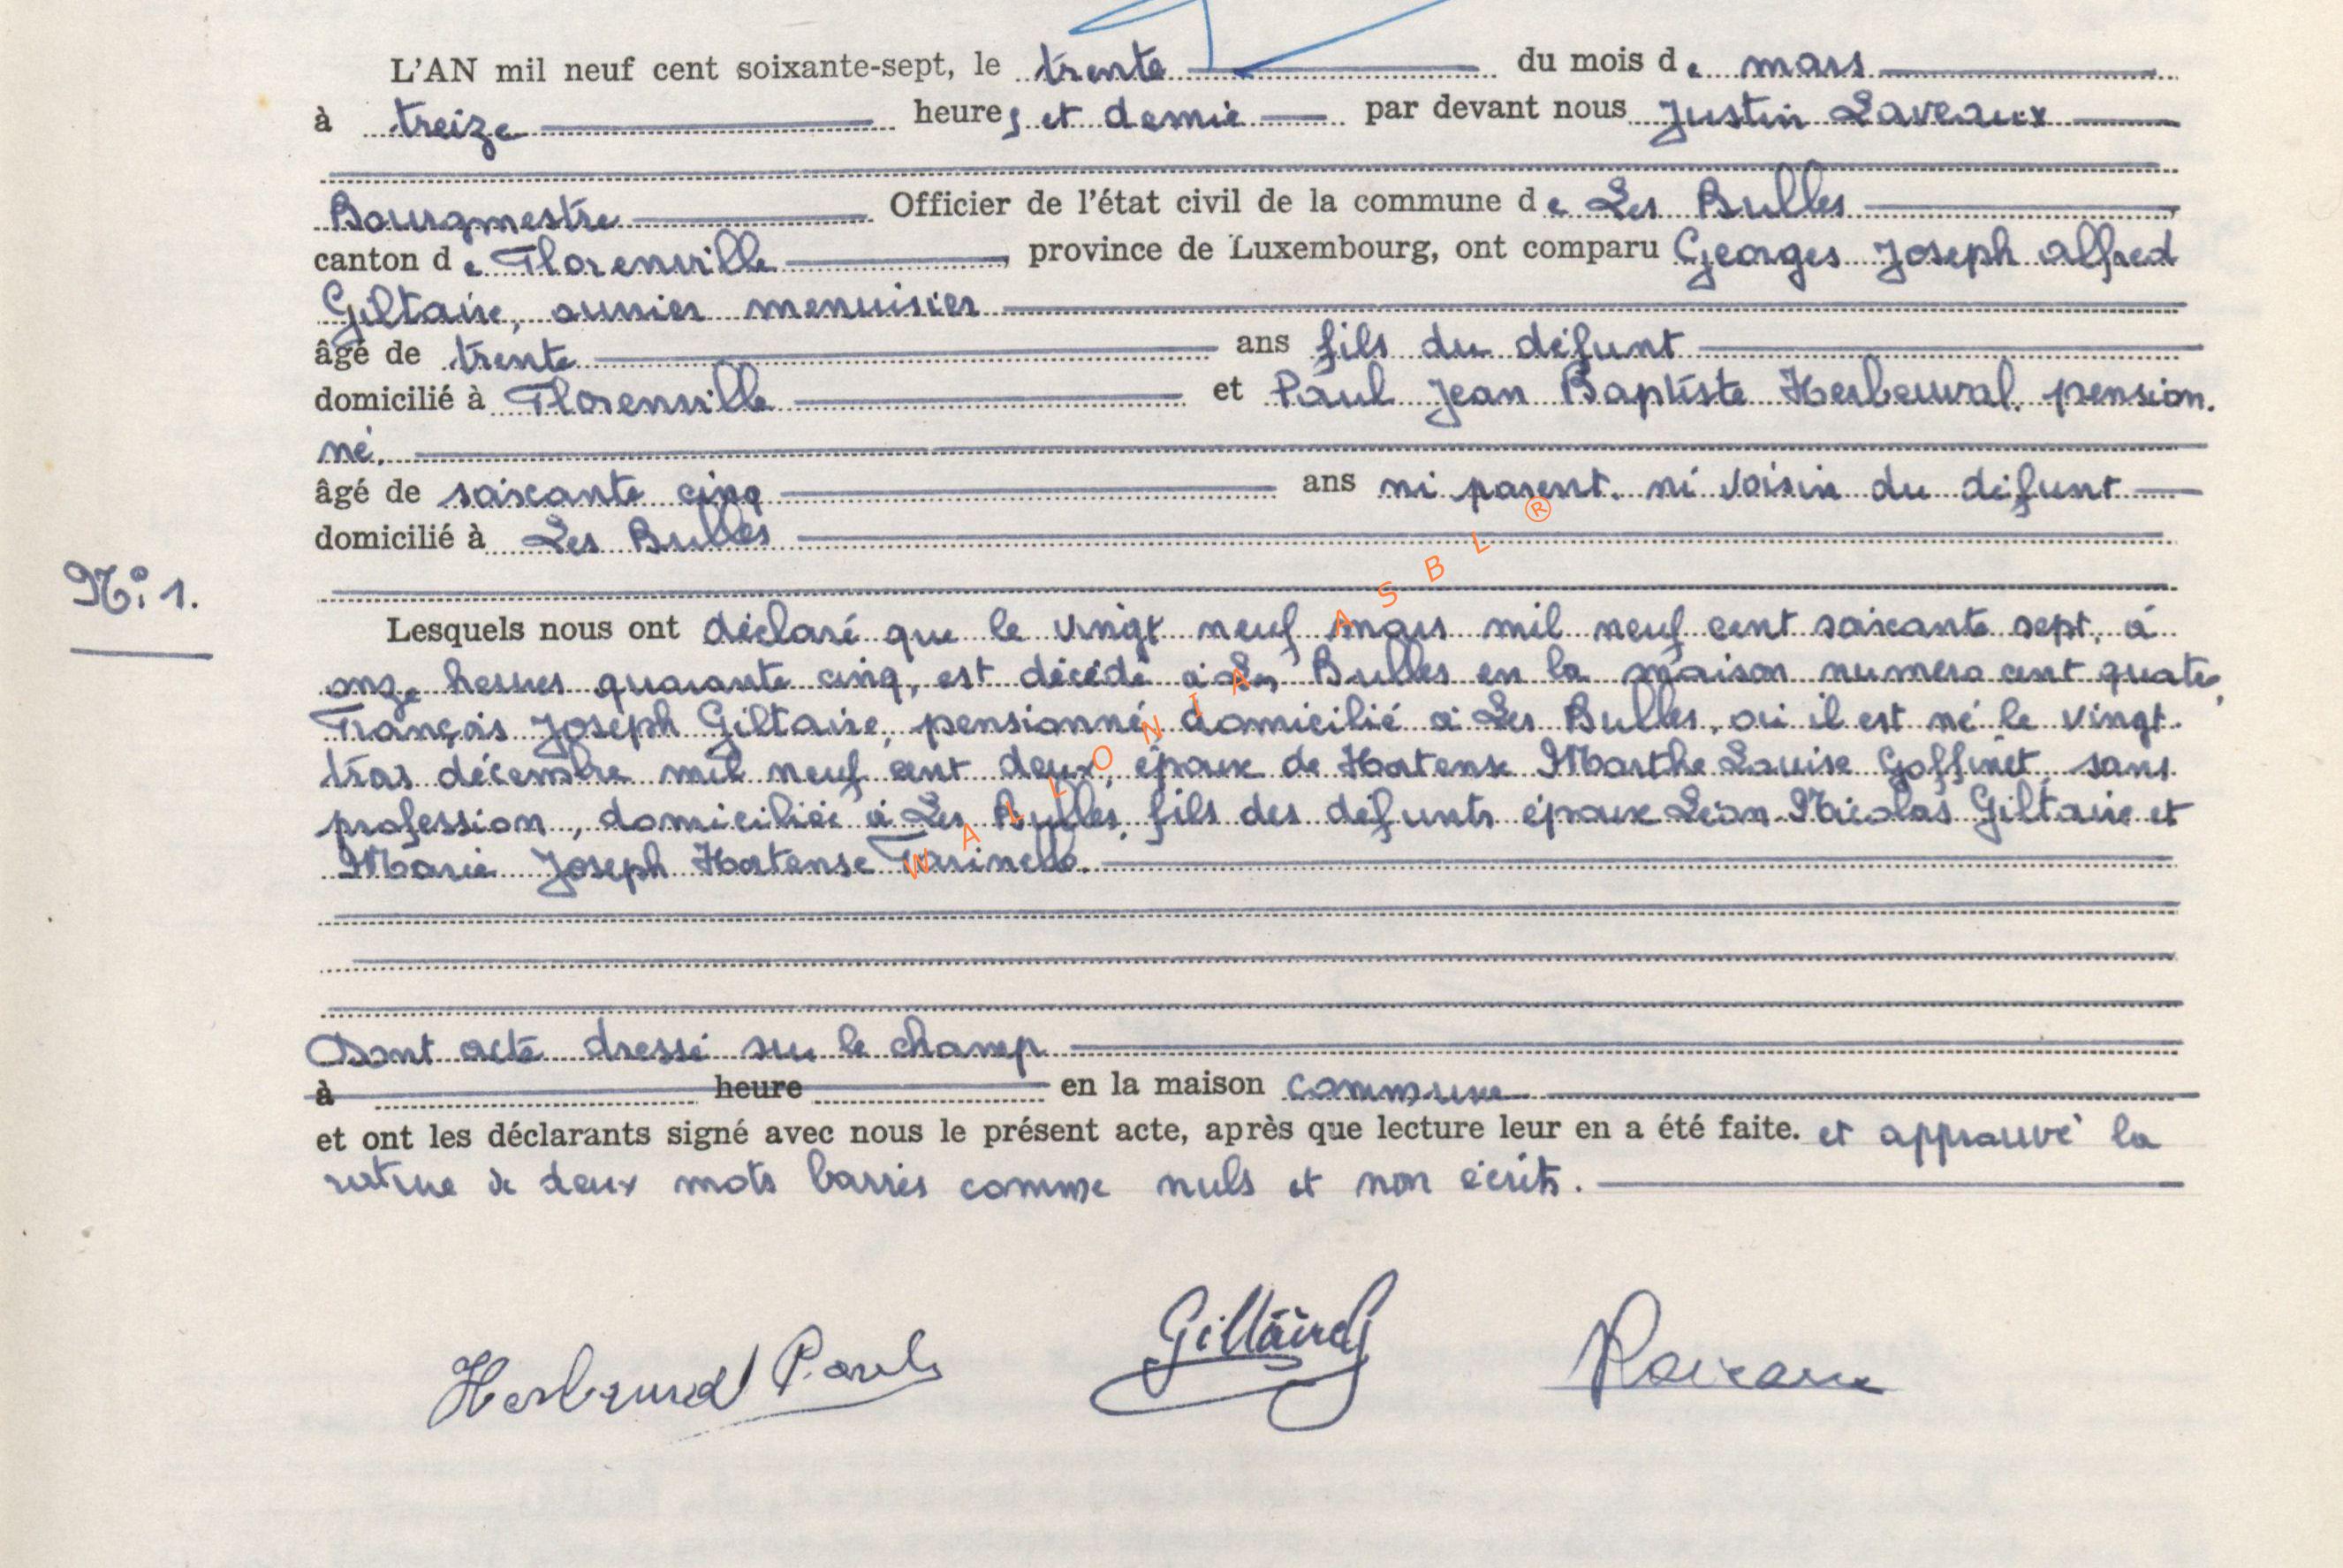 L'AN mil neuf cent soixante-sept, le trente du mois de mars
à treize heures et demie par devant nous Justin Laveaux
Bourgmestre Officier de l'état civil de la commune de Les Bulles
canton de Florenville, province de Luxembourg, ont comparu Georges Joseph Alfred
Giltaire, ouvrier menuisier
âgé de trente ans fils du défunt
domicilié à Florenville et Paul Jean Baptiste Herbeuval, pension.
né,
âgé de soixante cinq ans ni parent, ni voisin du défunt
domicilié à Les Bulles
N° 1.
Lesquels nous ont déclaré que le vingt neuf mars mil neuf cent soixante sept, à
onze heures quarante cinq, est décédé à Les Bulles en la maison numéro cent quatre,
François Joseph Giltaire, pensionné, domicilié à Les Bulles, où il est né le vingt
trois décembre mil neuf cent deux, époux de Hortense Marthe Louise Goffinet, sans
profession, domiciliée à Les Bulles, fils des défunts époux Léon Nicolas Giltaire et
Marie Joseph Hortense Tarinelle.
Dont acte dressé sur le champ
à heure en la maison commune
et ont les déclarants signé avec nous le présent acte, après que lecture leur en a été faite. et approuvé la
rature de deux mots barrés comme nuls et non écrits.
Herbeuval Paul Giltaire G
WALLONIA ASBL ®